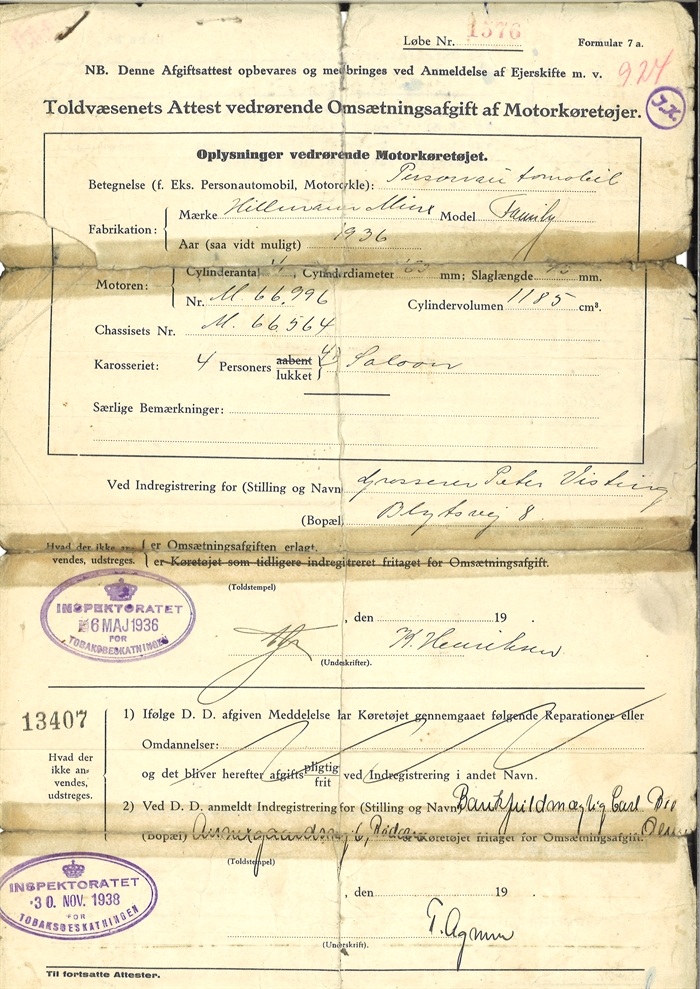 Løbe Nr. 1576
Formular 7 a.
NB. Denne Afgiftsattest opbevares og medbringes ved Anmeldelse af Ejerskifte m. v.
924
Toldvæsenets Attest vedrørende Omsætningsafgift af Motorkøretøjer.
Oplysninger vedrørende Motorkøretøjet.
Betegnelse (f. Eks. Personautomobil, Motorcykle): Personautomobil
Fabrikation: Mærke Hillman Minx Model Family
Aar (saa vidt muligt) 1936
Motoren: Cylinderantal 4, Cylinderdiameter 63 mm; Slaglængde mm.
Nr. M 66,996 Cylindervolumen 1185 cm³.
Chassisets Nr. M. 66564
Karosseriet: 4 Personers aabent lukket Saloon
Særlige Bemærkninger:
Ved Indregistrering for (Stilling og Navn) Grosserer Peter Visting
(Bopæl) Blytsvej 8.
Hvad der ikke anvendes, udstreges.
er Omsætningsafgiften erlagt.
er Køretøjet som tidligere indregistreret fritaget for Omsætningsafgift.
(Toldstempel)
INSPEKTORATET
6 MAJ 1936
FOR
TOBAKSBESKATNINGEN
, den 19
K. Henriksen
(Underskrifter).
13407
Hvad der ikke anvendes, udstreges.
1) Ifølge D. D. afgiven Meddelelse har Køretøjet gennemgaaet følgende Reparationer eller
Omdannelser:
og det bliver herefter afgifts pligtig frit ved Indregistrering i andet Navn.
2) Ved D. D. anmeldt Indregistrering for (Stilling og Navn) Bankfuldmægtig Carl
(Bopæl) Køretøjet fritaget for Omsætningsafgift.
(Toldstempel)
INSPEKTORATET
30. NOV. 1938
FOR
TOBAKSBESKATNINGEN
, den 19
(Underskrift).
Til fortsatte Attester.